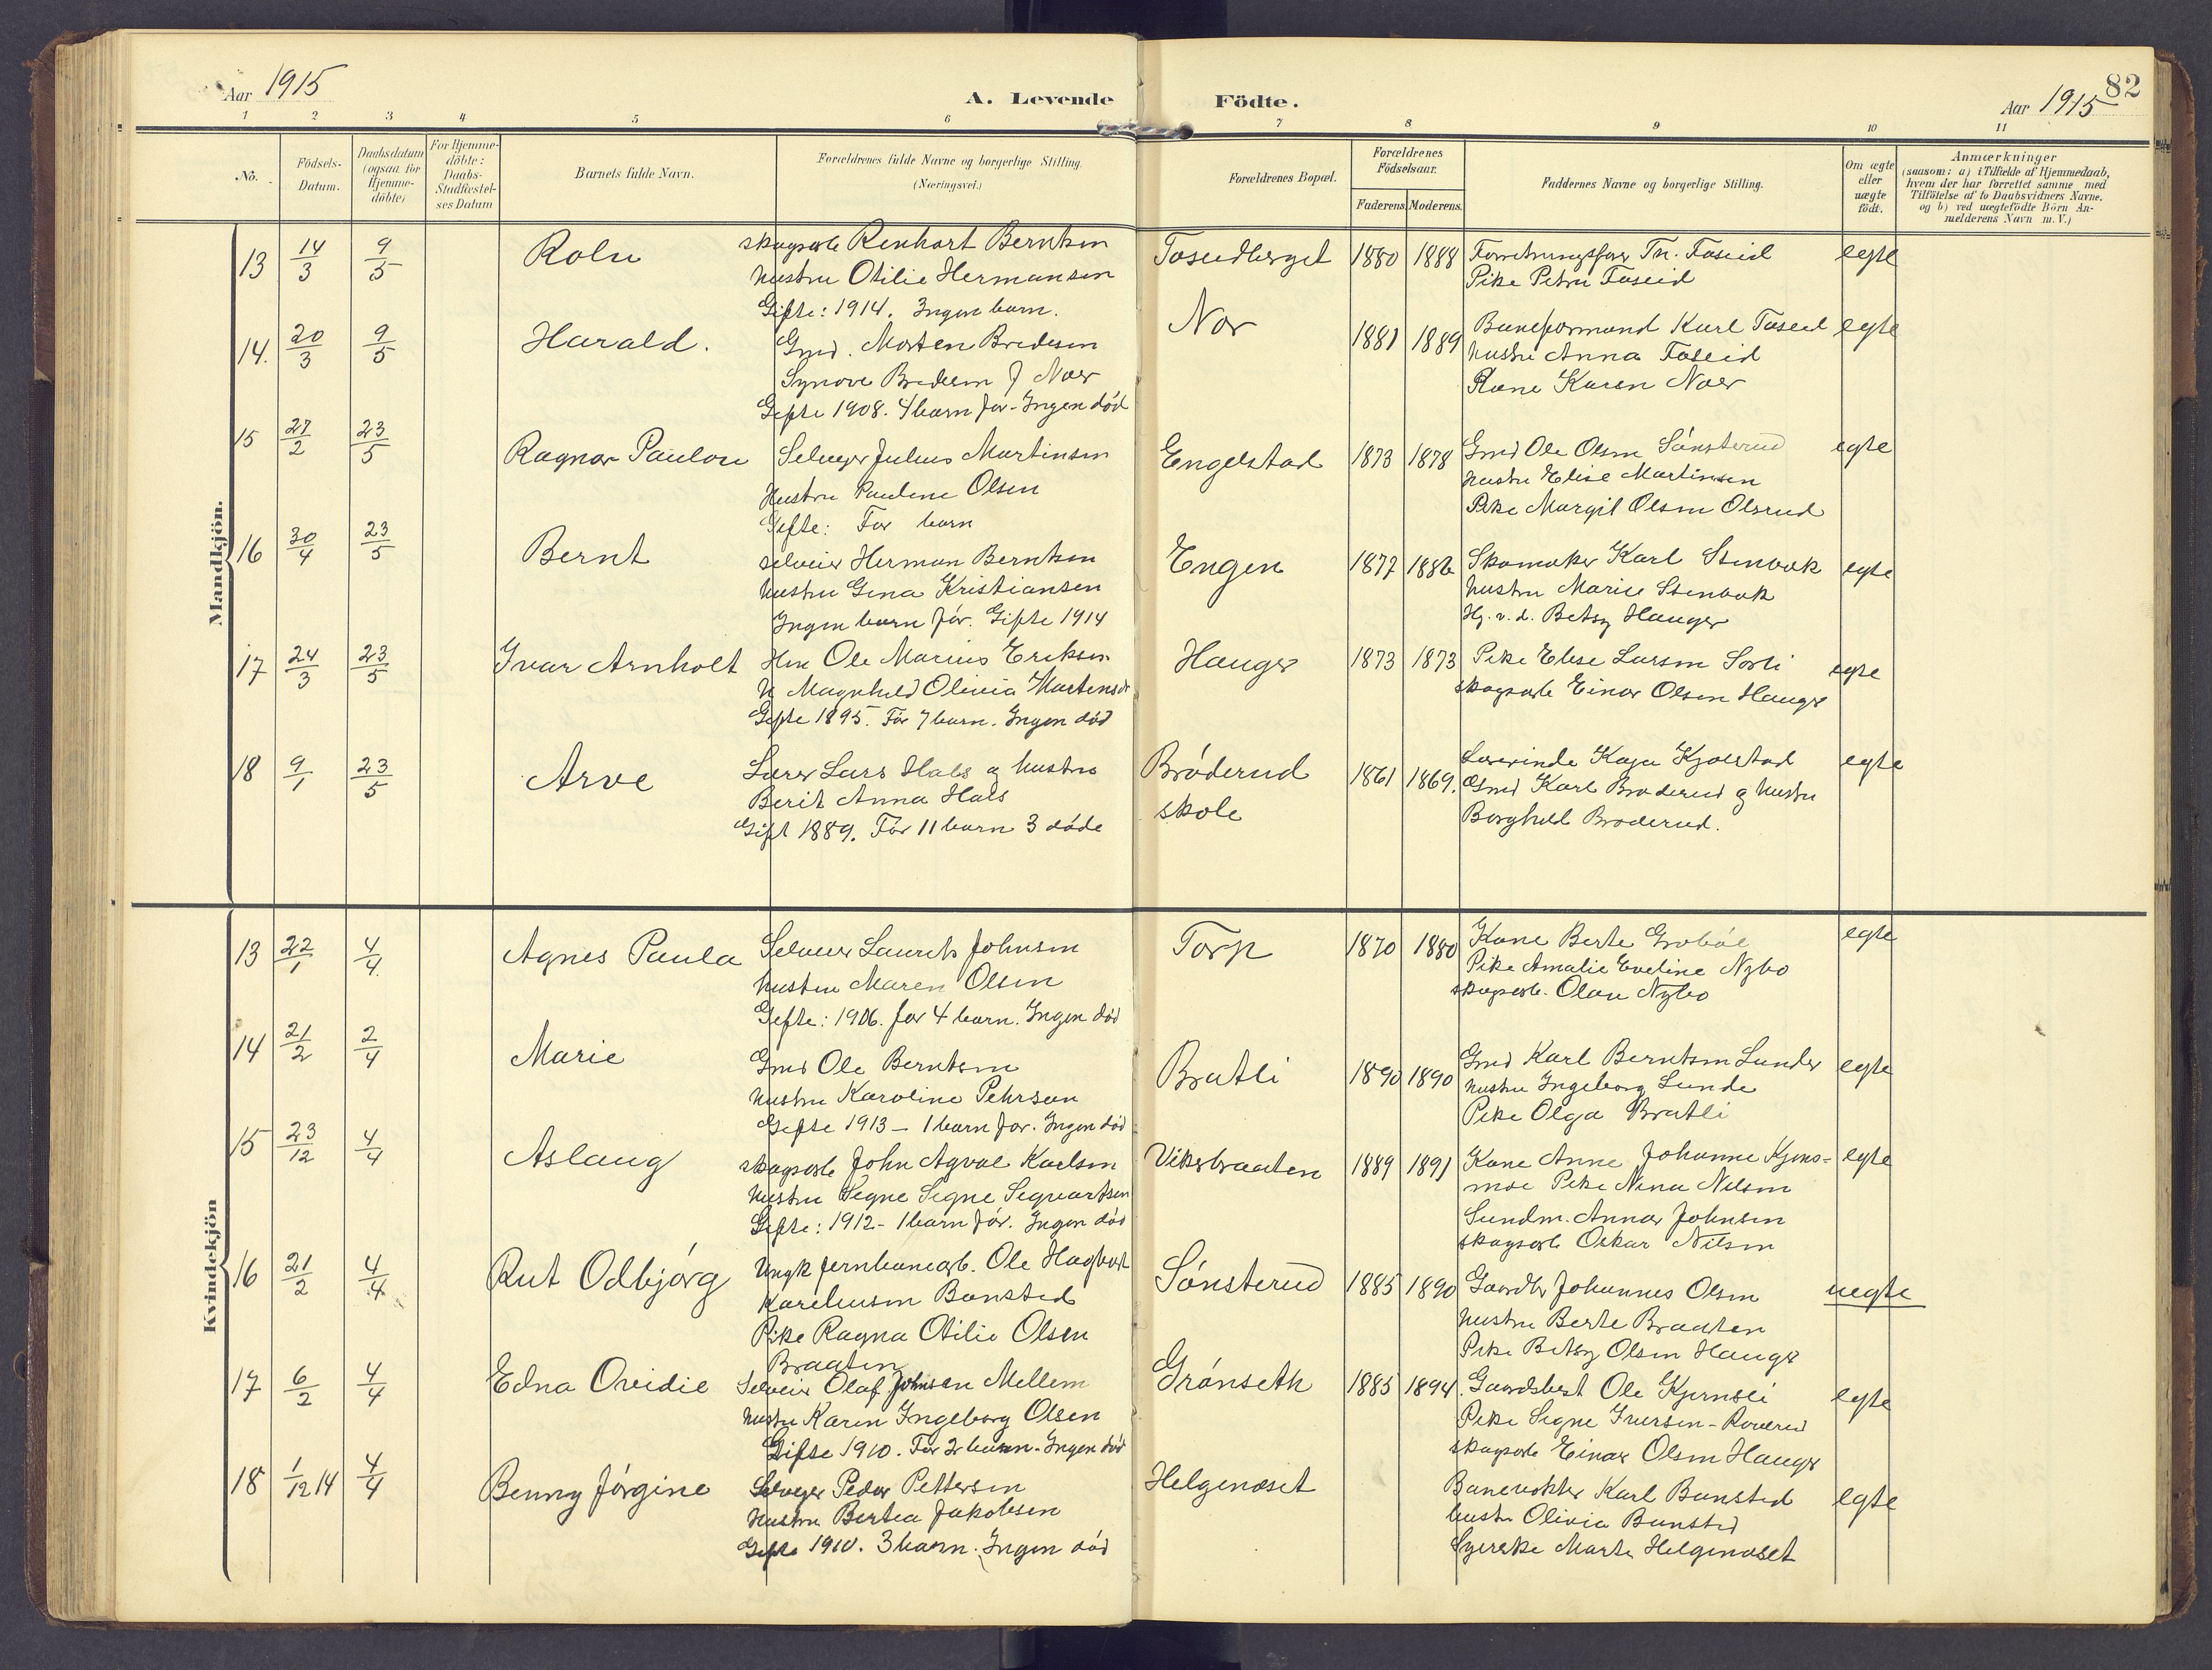 Aar 1915
A. Levende Födte.
Aar 1915
82
1 2 3 4 5 6 7 8 9 10 11
No.
Födsels-Datum.
Daabsdatum (ogsaa for Hjemme-döbte)
For Hjemme-döbte: Daabs-Stadfæstel-ses Datum
Barnets fulde Navn.
Forældrenes fulde Navne og borgerlige Stilling.
(Næringsvei.)
Forældrenes Bopæl.
Forældrenes Födselsaar.
Faderens. Moderens.
Faddernes Navne og borgerlige Stilling.
Om ægte eller uægte födt.
Anmærkninger
(saasom: a) i Tilfælde af Hjemmedaab, hvem der har forrettet samme med Tilföielse af to Daabsvidners Navne, og b) ved uægtefödte Börn An-melderens Navn m. V.)
Mandkjön.
13 14/3 9/5 skogsarb Renhart Berntsen Toseidberget 1880 1888 egte
Hustru Otilie Hermansen Pike Petra Foseid
Gifte: 1914. Ingen barn.
14. 20/3 9/5 Harald. Gmd. Morten Bredesen Nor 1881 1889 Baneformand Karl Toseid egte
Synove Bredesen f Noer hustru Anna Foseid
Gifte 1908. 4 barn før. Ingen död Kone Karen Noer
15 27/2 23/5 Ragnar Paulou Selveger Julius Martinsen Engelstad 1873 1878 Gmd Ole Olsen Sönsterud egte
Hustru Pauline Olsen hustru Elise Martinsen
Gifte: Før barn Pike Margit Olsen Olsrud
16 30/4 23/5 Bernt selveier Herman Berntsen Engen 1877 1886 Skomaker Karl Stenbak egte
hustru Gina Kristiansen hustru Marie Stenbak
Ingen barn för. Gifte 1914 Hj. v. d. Betsy Hauger
17 24/3 23/5 Ivar Arnholt Hm Ole Marius Eriksen Hauger 1873 1873 Pike Elise Larsen Sorli egte
H Magnhild Olivia Martensdr skogsarb Einar Olsen Hauger
Gifte 1895. För 7 barn. Ingen död
18 9/1 23/5 Arve Lærer Lars Hals og hustru Bröderud 1861 1869. Lærerinde Kaja Kjolstad egte
Berit Anna Hals skole Gmd Karl Broderud og hustru
Gift 1889. För 11 barn 3 döde Borghild Broderud.
Kvindekjön
13 22/1 4/4 Agnes Paula Selveier Laurits Johnsen Torp 1870 1880 Kone Berte Grobøl egte
hustru Maren Olsen Pike Amalie Eveline Nybo
Gifte: 1906. før 4 barn. Ingen död skogsarb. Olav Nybo
14 21/2 2/4 Marie Gmd Ole Berntsen Bratli 1890 1890 Gmd Karl Berntsen Lunder egte
hustru Karoline Pehrsen hustru Ingeborg Lunde
Gifte 1913 - 1 barn før. Ingen död Pike Olga Bratli
15 23/12 4/4 Aslaug skogsarb John Agval Karlsen Viksbraaten 1889 1891 Kone Anne Johanne Kjons= egte
hustru Signe Signe Sigvartsen moe Pike Nina Nilsen
Gifte: 1912 - 1 barn för. Ingen död Sundm. Annar Johnsen
skogsarb Oskar Nilsen
16 21/2 4/4 Rut Odbjörg Ungk jernbanearb. Ole Hagbart Sönsterud 1885 1890 Gaardbr Johannes Olsen uegte
Kareliusen Bansted hustru Berte Braaten
Pike Ragna Otilie Olsen Pike Betsy Olsen Hauger
Braaten
17 6/2 4/4 Edna Ovidie Selveier Olaf Johnsen Mellem Grönseth 1885 1894. Gaardsbest Ole Kjernsli egte
hustru Karen Ingeborg Olsen Pike Signe Iversen -
Gifte 1910. För 2 barn. Ingen död skogsarb Einar Olsen Hauger
18 1/12 14 4/4 Benny Jörgine Selveger Peder Pettersen Helgenæset Banevokter Karl Bansted egte
hustru Bertea Jakobsen hustru Olivia Bansted
Gifte 1910. 3 barn. Ingen död Syerske Marte Helgenæset